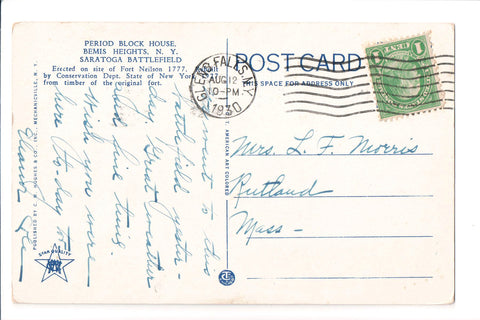 PERIOD BLOCK HOUSE,
BEMIS HEIGHTS, N. Y.
SARATOGA BATTLEFIELD
Erected on site of Fort Neilson 1777.
by Conservation Dept. State of New York
from timber of the original fort.
POST CARD
THIS SPACE FOR ADDRESS ONLY.
GLENS FALLS, N.Y.
AUG 12
10-PM
1930
1
1
went to this
battlefield yester-
day Great weather
and fine time.
Wish you were
here to-day to
Eleanor
Mrs. L. F. Morris
Rutland
Mass-
PUBLISHED BY C. W. HUGHES & CO., INC., MECHANICVILLE, N. Y.
AMERICAN ART COLORED
STAR QUALITY